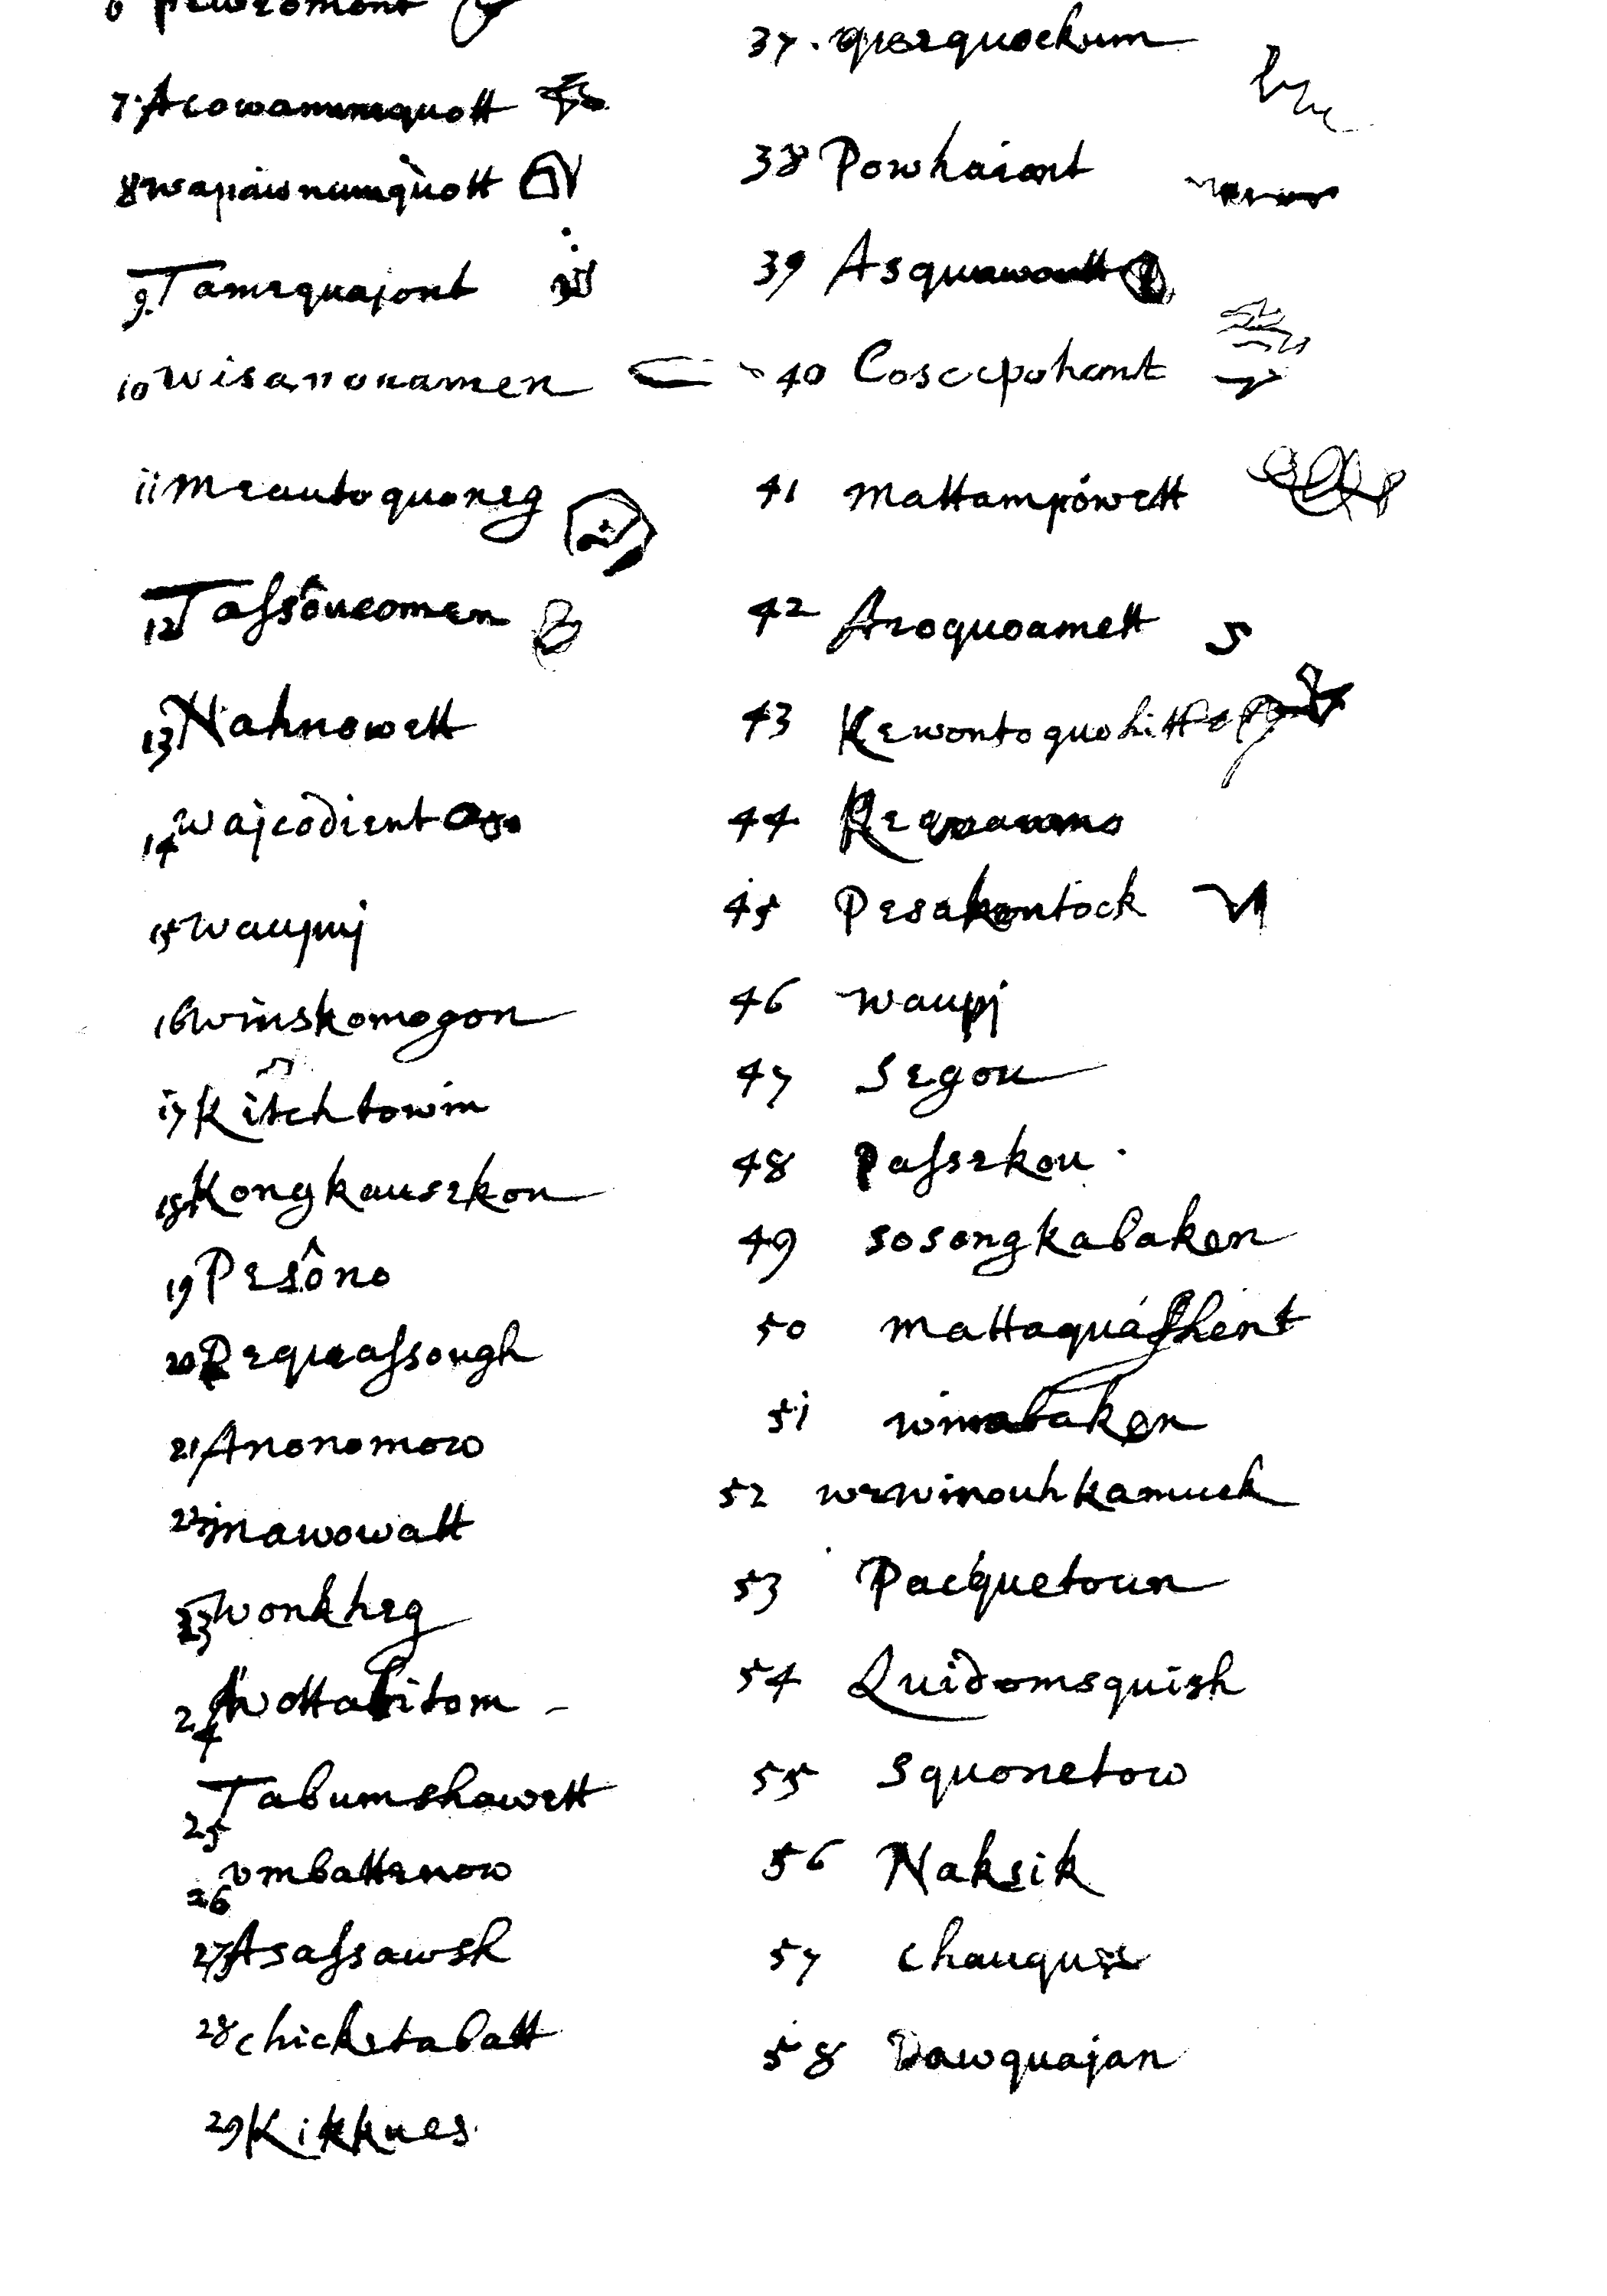 7. Acowanumquott
8 wapáwnumquott
9. Tamequajont
10 wisanonamen
11 Meautoquoneg
12 Taſsôucomen
13 Nahnowett
14 wajcodient
15 waupuj
16 winskomogon
17 Kitchtowin
18 Kongkausekon
19 Pesôno
20 Pequeaſsough
21 Anonomow
22 mawowatt
23 wonkheg
24 wottabitom
25 Tabumshawett
26 vmbattenow
27 Asaſsawsh
28 chicketabatt
29 Kikkues
37. quequockum
38 Powhaiont
39 Asquawontt
40 Coscepohont
41 mattampówett
42 Aroquoamett
43 Kewontoquohitt
44
45 Pesakontock
46 waupj
47 Segou
48 Paſsekou
49 sosongkabaken
50 mattaquáſhent
51 winnabaken
52 wewinouhkamuck
53 Pacquetoun
54 Quidomsquish
55 Squonetow
56 Naksik
57
58 Dawquajan